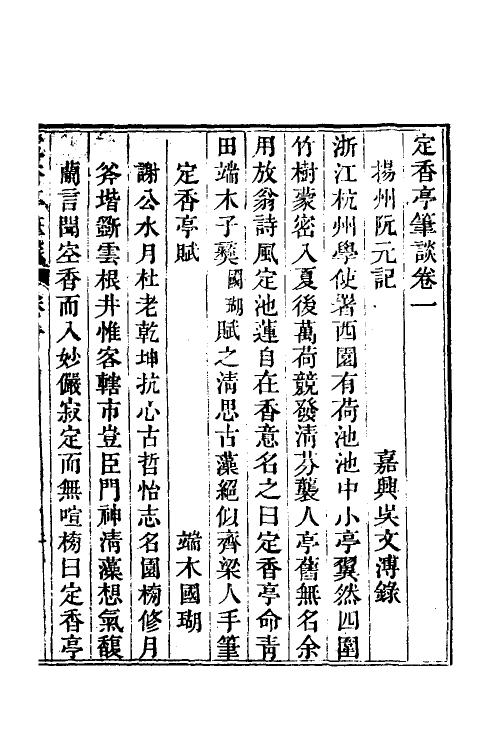 定香亭筆談卷一
揚州阮元記　嘉興吳文溥錄
浙江杭州學使署西園有荷池池中小亭翼然四圍
竹樹蒙密入夏後萬荷競發清芬襲人亭舊無名余
用放翁詩風定池蓮自在香意名之曰定香亭命青
田端木子彞國瑚賦之清思古藻絕似齊梁人手筆
定香亭賦　端木國瑚
謝公水月杜老乾坤抗心古哲怡志名園楠修月
斧堦斵雲根井惟客轄市豈臣門神清藻想氣馥
蘭言聞空香而入妙儼寂定而無喧楠曰定香亭